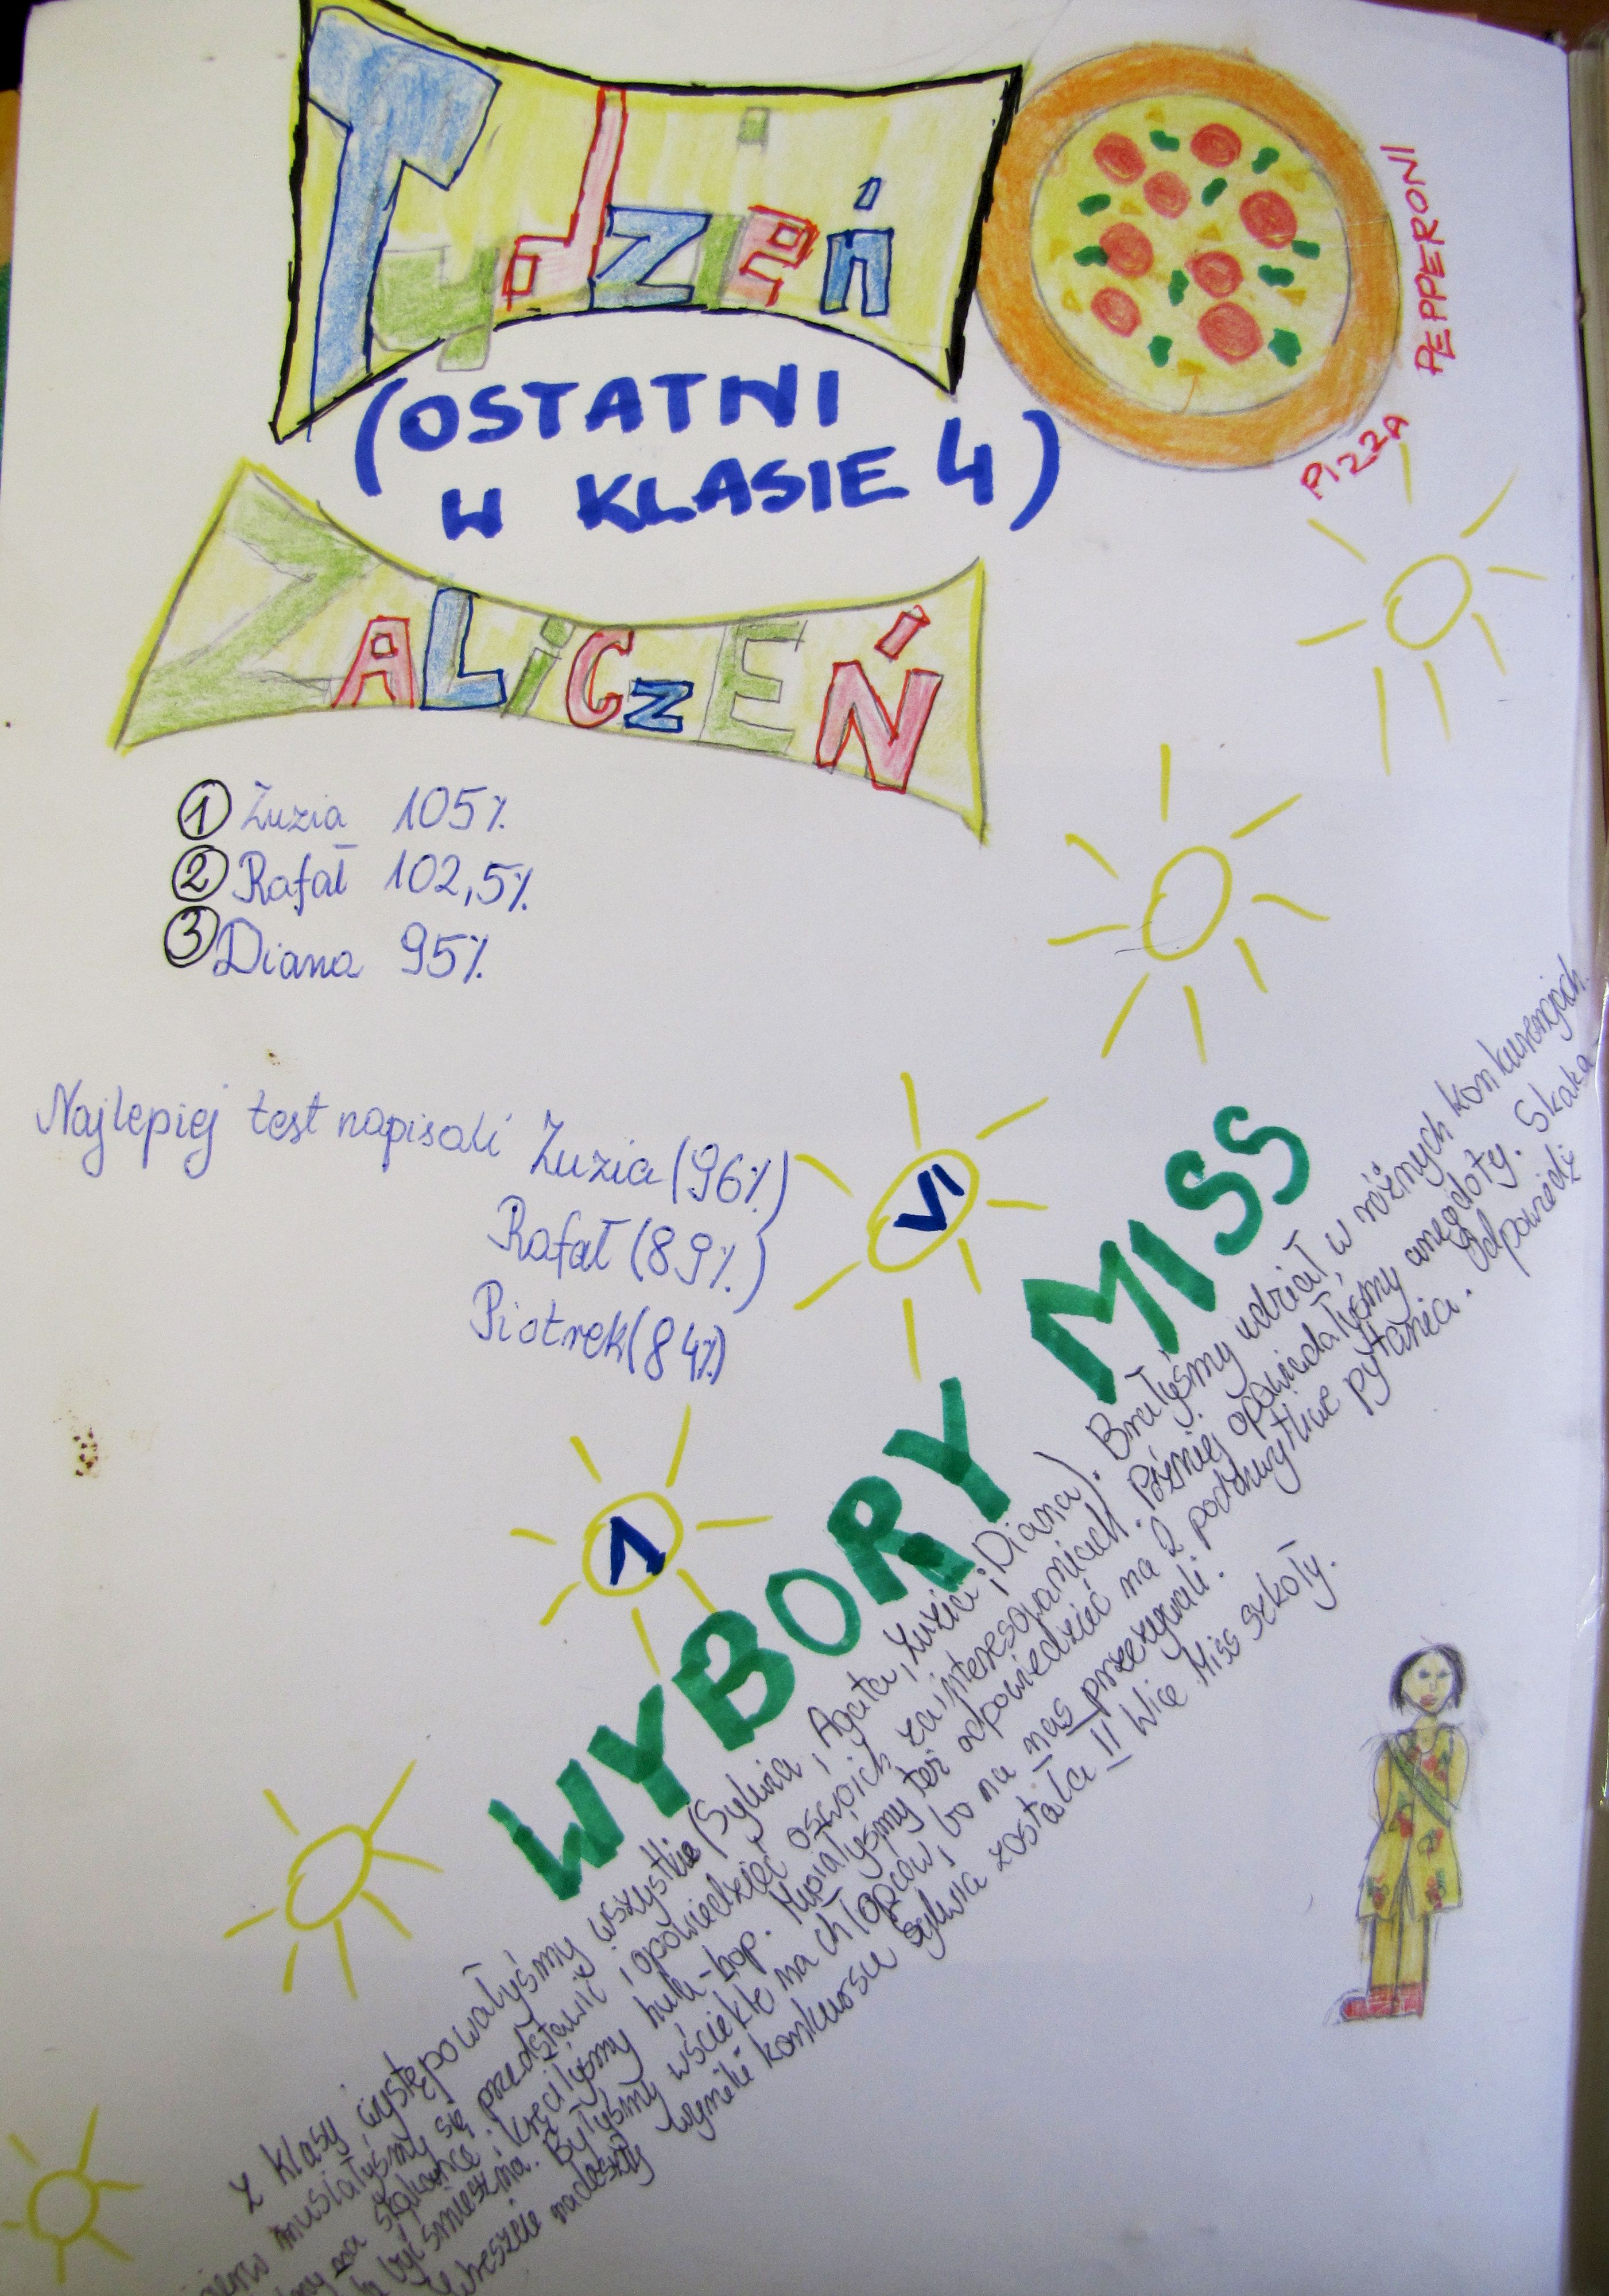 Tydzień
PIZZA PEPPERONI
(OSTATNI
W KLASIE 4)
ZALiCzEŃ
1 Zuzia 105%
2 Rafał 102,5%
3 Diana 95%
Najlepiej test napisali Zuzia (96%)
Rafał (89%)
Piotrek (84%)
VI
1
WYBORY MISS
Z klasy występowałyśmy wszystkie (Sylwia, Agata, Zuzia i Diana). Brałyśmy udział w różnych konkurencjach.
musiałyśmy się przedstawić i opowiedzieć o swoich zainteresowaniach. Później opowiadałyśmy anegdoty. Skaka
na skakance i kręciłyśmy hula-hop. Musiałyśmy też odpowiedzieć na 2 podchwytliwe pytania. Odpowiedź
być śmieszna. Byłyśmy wściekłe na chłopców, bo na nas przezywali.
Wreszcie nadeszły wyniki konkursu Sylwia została II Wice Miss szkoły.